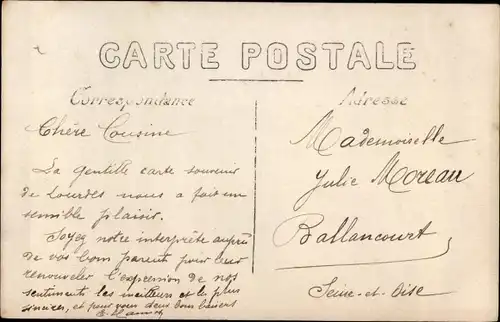 CARTE POSTALE
Correspondance
Chère Cousine
La gentille carte souvenir
de Lourdes nous a fait un
sensible plaisir.
Soyez notre interprète auprès
de vos bons parents pour leur
renouveler l'expression de nos
sentiments les meilleurs et les plus
sincères, et pour vous deux bons baisers
Adresse
Mademoiselle
Julie Moreau
Ballancourt
Seine-et-Oise